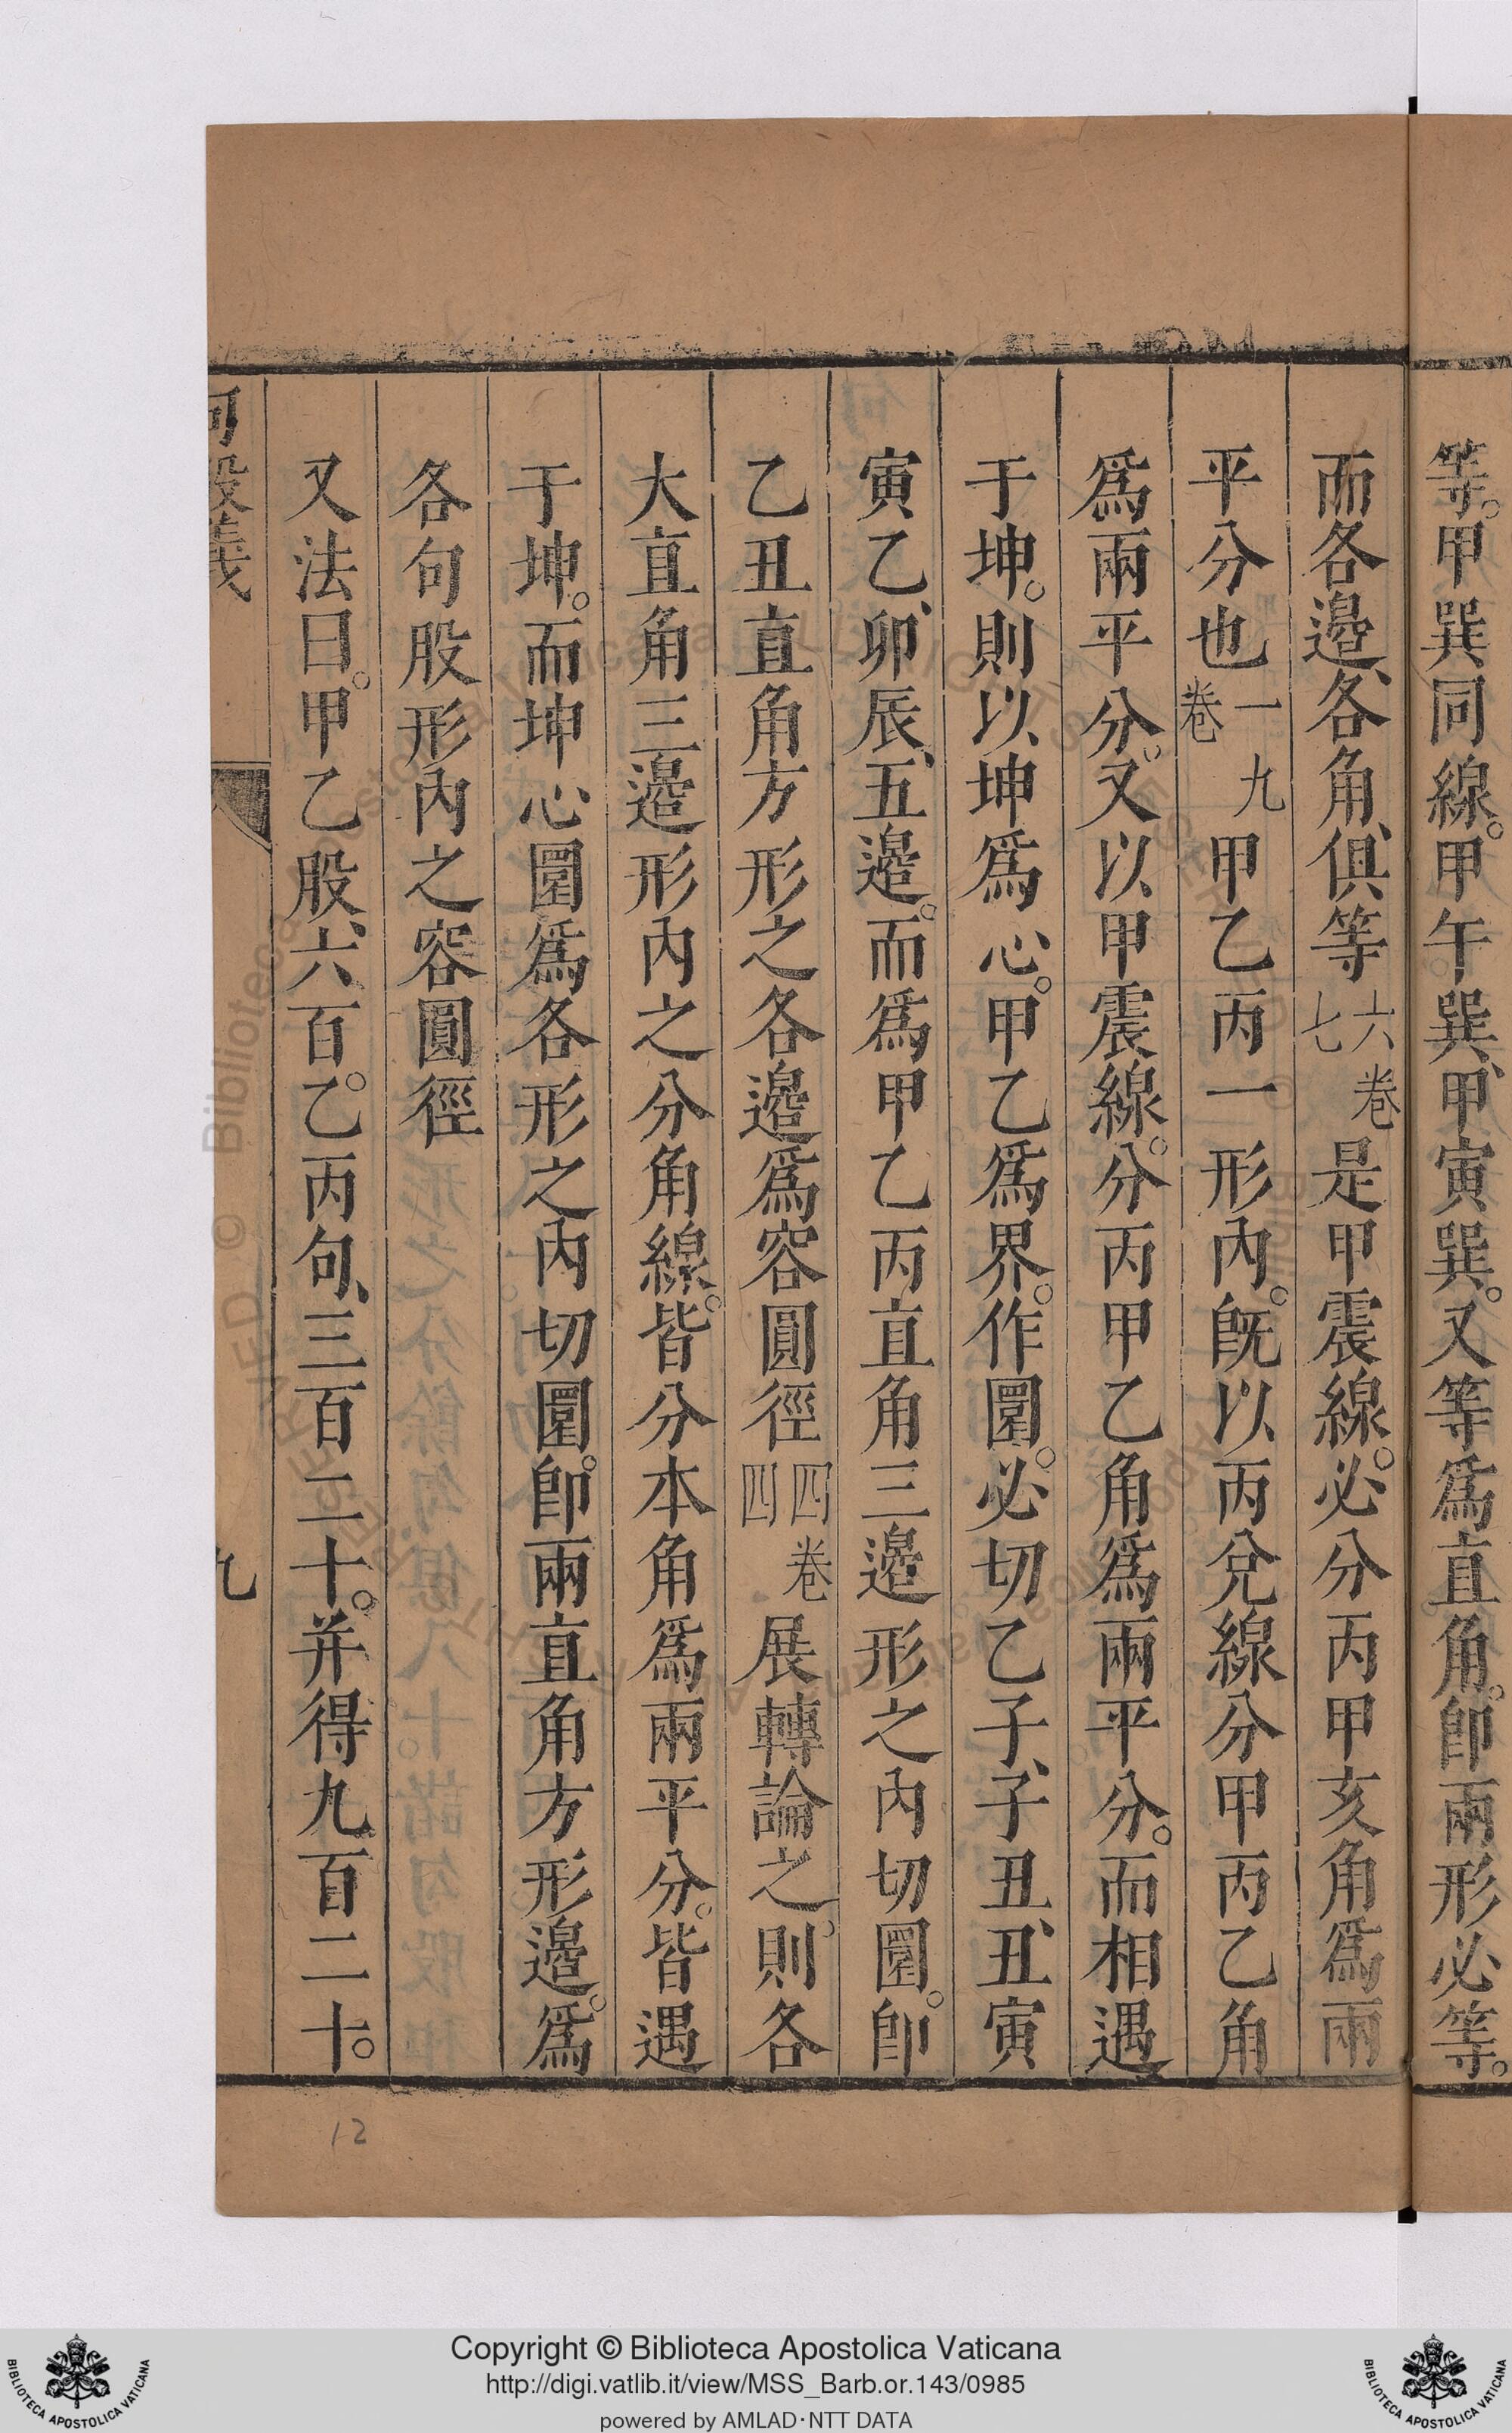 等。甲巽同線。甲午巽、甲寅巽。又等爲直角。卽兩形必等。
而各邉、各角、俱等六卷七是甲震線。必分丙甲亥角爲兩
平分也一卷九甲乙丙一形內。旣以丙兌線分甲丙乙角
爲兩平分。又以甲震線。分丙甲乙角爲兩平分。而相遇
于坤。則以坤爲心。甲乙爲界。作圜。必切乙子、子丑、丑寅
寅乙、卯辰、五邉。而爲甲乙丙直角三邉形之內切圜。卽
乙丑直角方形之各邉爲容圓徑四卷四展轉論之、則各
大直角三邉形內之分角線。皆分本角爲兩平分。皆遇
于坤。而坤心圜爲各形之內切圜。卽兩直角方形邉。爲
各句股形內之容圓徑
又法曰。甲乙股、六百。乙丙句、三百二十。并得九百二十。
句股義
九
12
Copyright © Biblioteca Apostolica Vaticana
http://digi.vatlib.it/view/MSS_Barb.or.143/0985
powered by AMLAD·NTT DATA
BIBLIOTECA APOSTOLICA VATICANA
BIBLIOTECA APOSTOLICA VATICANA